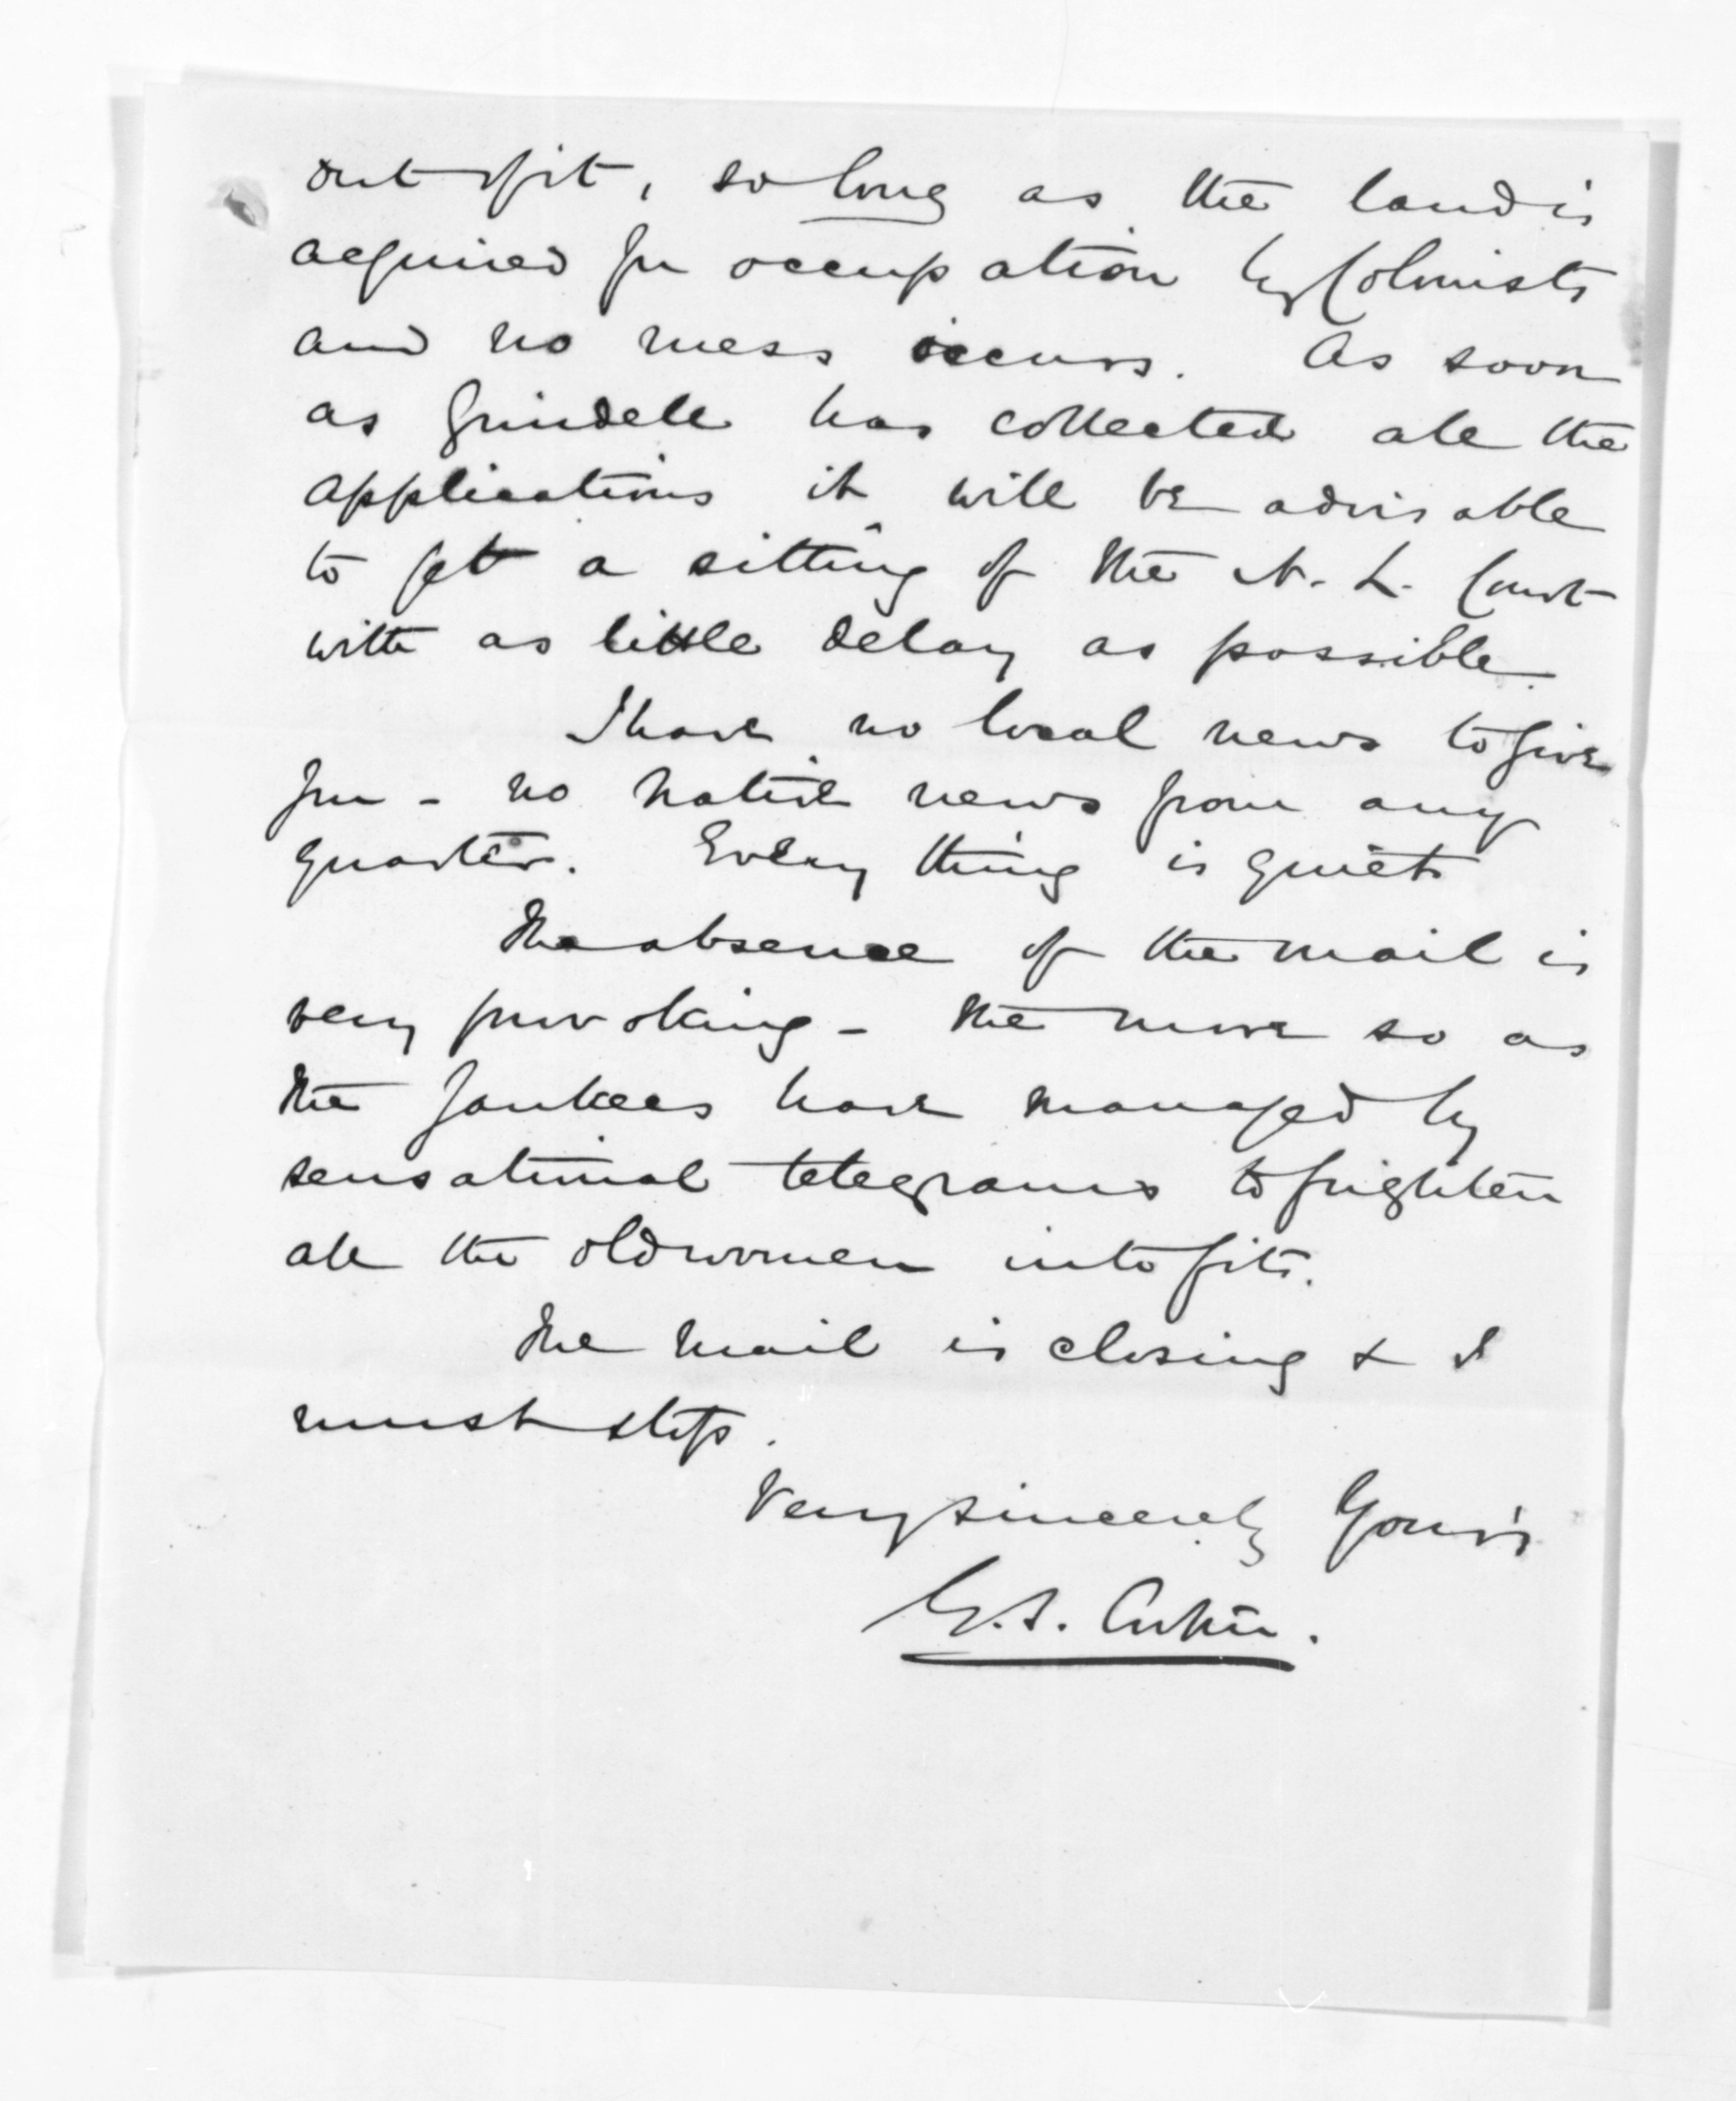 out of it, so long as the land is
acquired for occupation by Colonists
and no mess occurs. As soon
as Grindell has collected all the
applications it will be advisable
to get a sitting of the N. L. Court
with as little delay as possible.
I have no local news to give
you - no native news from any
quarter. Every thing is quiet
The absence of the mail is
very provoking - the more so as
the Yankees have managed by
sensational telegrams to frighten
all the old women into fits.
The mail is closing & I
must stop.
Very sincerely Yours
G. S.